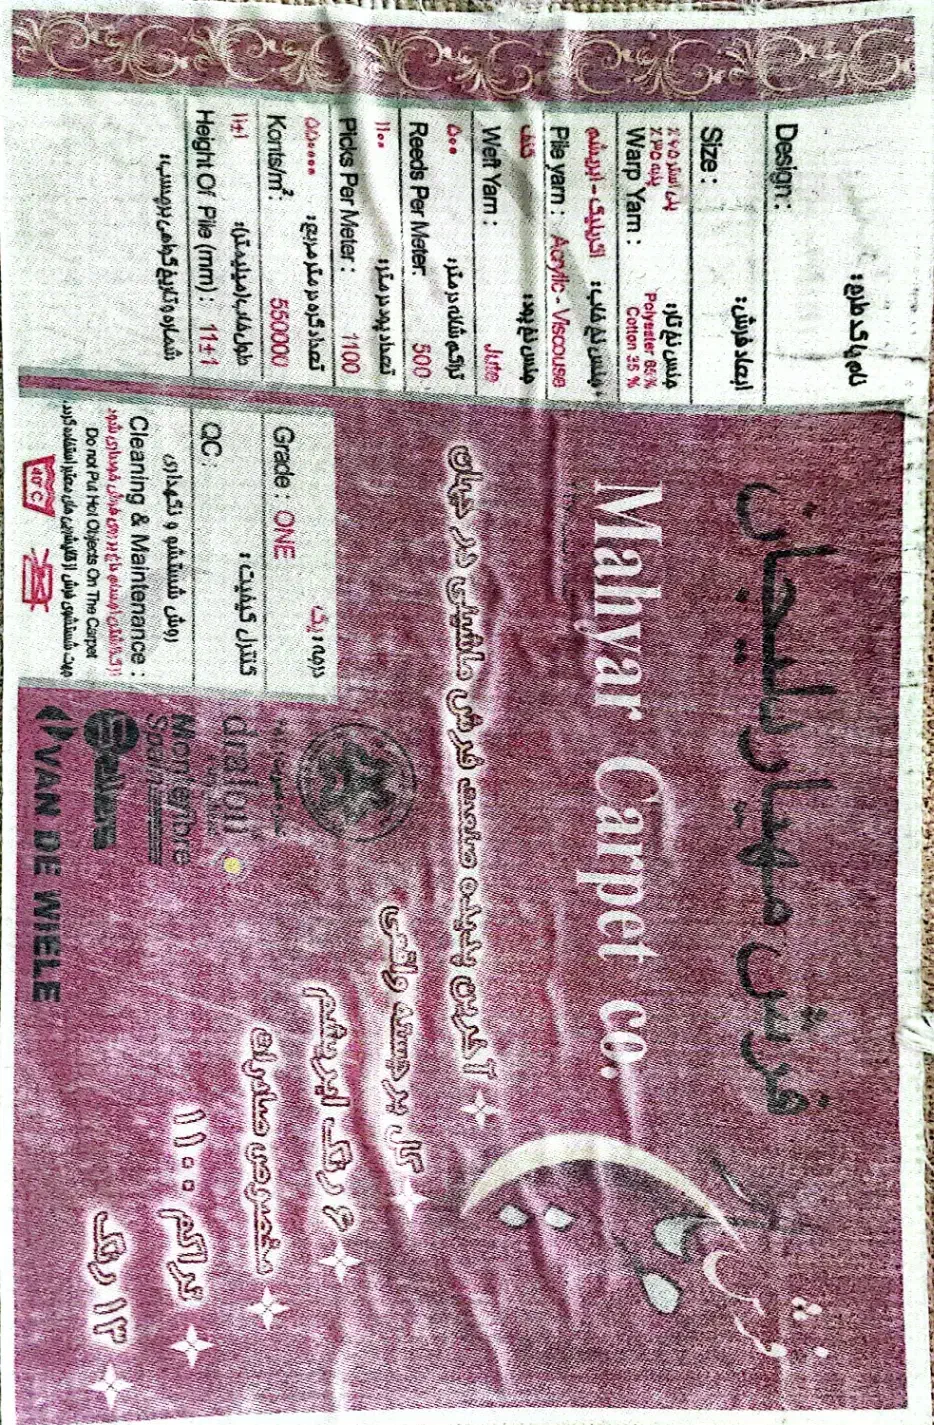 نام یا کد طرح :
Design :
ابعاد فرش :
Size :
جنس نخ تار :
پلی استر ۶۵٪
پنبه ۳۵٪
Warp Yarn :
Polyester 65 %
Cotton 35 %
جنس نخ خاب : اکریلیک - ابریشم
Pile yarn : Acrylic - Viscouse
جنس نخ پود : کنف
Weft Yarn : Jute
تراکم شانه در متر : ۵۰۰
Reeds Per Meter: 500
تعداد پود در متر : ۱۱۰۰
Picks Per Meter : 1100
تعداد گره در متر مربع : ۵۵۰۰۰۰
Konts/m² : 550000
طول خاب (میلیمتر) : ۱۱±۱
Height Of Pile (mm) : 11±1
شماره و تاریخ گواهی برچسب :
درجه : یک
Grade : ONE
کنترل کیفیت :
QC :
روش شستشو و نگهداری
Cleaning & Maintenance :
از گذاشتن اجسام داغ بر روی فرش خودداری شود
Do not Put Hot Objects On The Carpet
جهت شستشوی فرش از قالیشویی های معتبر استفاده گردد.
40°C
فرش مهیار دلیجان
Mahyar Carpet co.
آخرین پدیده صنعت فرش ماشینی در جهان
گل برجسته واقعی
۶ رنگ ابریشم
مخصوص صادرات
تراکم ۱۱۰۰
۱۳ رنگ
فرش
dralon
Montefibre
Spain
VAN DE WIELE